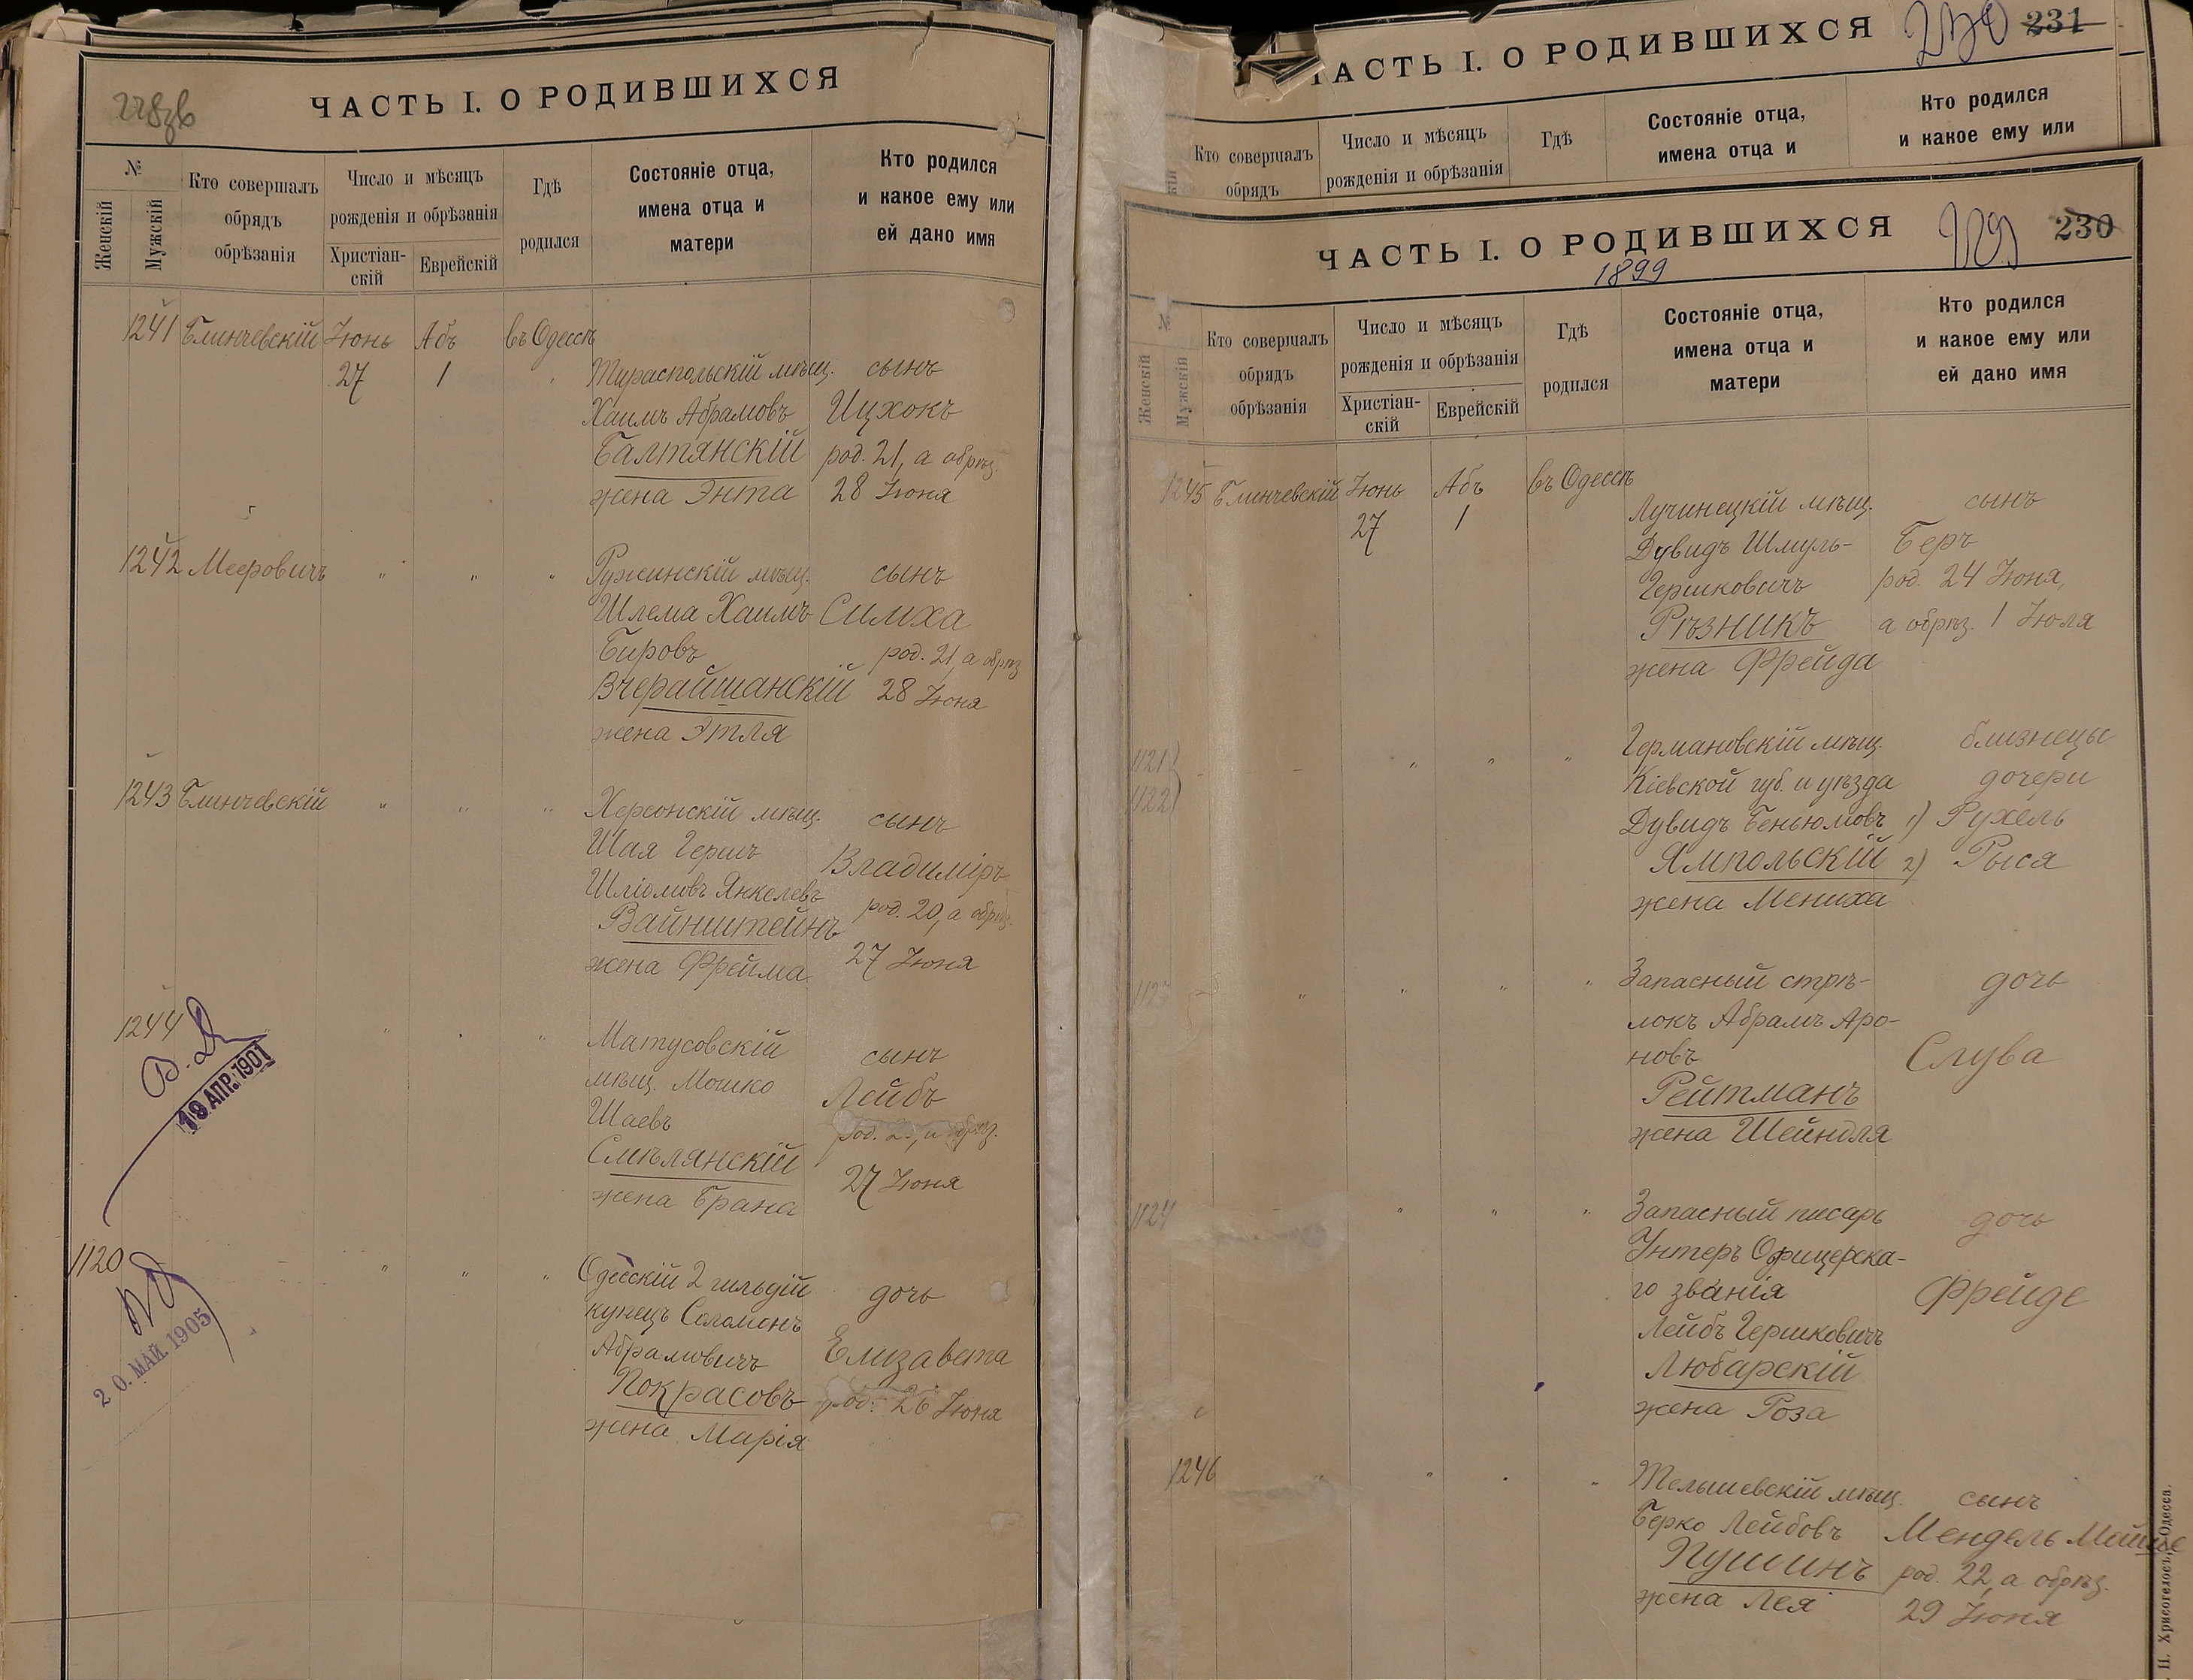 228об
ЧАСТЬ I. О РОДИВШИХСЯ
№
Женскій
Мужскій
Кто совершалъ
обрядъ
обрѣзанія
Число и мѣсяцъ
рожденія и обрѣзанія
Христіан-
скій
Еврейскій
Гдѣ
родился
Состояніе отца,
имена отца и
матери
Кто родился
и какое ему или
ей дано имя
1241 Блинчевскій Іюнь Абъ въ Одессѣ
27 1 Тираспольскій мѣщ. сынъ
Хаимъ Абрамовъ Ицхокъ
Балтянскій род. 21, а обрѣз.
жена Энта 28 Іюня
1242 Мееровичъ " " " Ружинскій мѣщ. сынъ
Шлема Хаимъ Симха
Бировъ род. 21, а обрѣз
Вчерайшанскій 28 Іюня
жена Этля
1243 Блинчевскій " " " Херсонскій мѣщ. сынъ
Шая Гершъ Владиміръ
Шліомовъ Янкелевъ род. 20, а обрѣз.
Вайнштейнъ
жена Фрейма 27 Іюня
1244 " " " " Матусовскій сынъ
мѣщ. Мошко Лейбъ
Шаевъ род. а обрѣз.
Смѣлянскій 27 Іюня
жена Брана
19 АПР. 1901
1120 " " " Одесскій 2 гильдій дочь
купецъ Соломонъ
Абрамовичъ Елизавета
Покрасовъ род. 26 Іюня
жена Марія
20. МАЙ. 1905
ЧАСТЬ I. О РОДИВШИХСЯ 230 231
Кто совершалъ
обрядъ
Число и мѣсяцъ
рожденія и обрѣзанія
Гдѣ
Состояніе отца,
имена отца и
Кто родился
и какое ему или
ЧАСТЬ I. О РОДИВШИХСЯ 229 230
1899
№
Женскій
Мужскій
Кто совершалъ
обрядъ
обрѣзанія
Число и мѣсяцъ
рожденія и обрѣзанія
Христіан-
скій
Еврейскій
Гдѣ
родился
Состояніе отца,
имена отца и
матери
Кто родился
и какое ему или
ей дано имя
1245 Блинчевскій Іюнь Абъ въ Одессѣ
27 1 Лучинецкій мѣщ. сынъ
Дувидъ Шмуль- Беръ
Гершковичъ род. 24 Іюня,
Рѣзникъ а обрѣз. 1 Іюля
жена Фрейда
1121) " " " Германовскій мѣщ. близнецы
1122) Кіевской губ. и уѣзда дочери
Дувидъ Беньюмовъ 1) Рухель
Ямпольскій 2) Рыся
жена Мениха
1123 " " " " Запасный стрѣ- дочь
локъ Абрамъ Аро-
новъ Слува
Рейтманъ
жена Шейндля
1124 " " " Запасный писарь дочь
Унтеръ Офицерска-
го званія Фрейде
Лейбъ Гершковичъ
Любарскій
жена Роза
1246 " " " " Тельшевскій мѣщ. сынъ
Берко Лейбовъ Мендель Мойше
Пушинъ род. 22, а обрѣз.
жена Лея 29 Іюня
Н. Хрисогелосъ, Одесса.